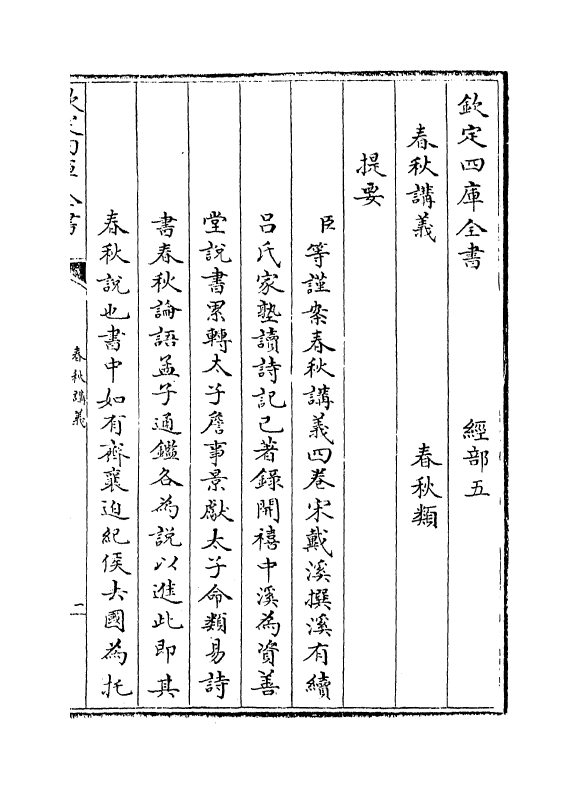 欽定四庫全書 經部五
春秋講義 春秋類
提要
臣等謹案春秋講義四卷宋戴溪撰溪有續
呂氏家塾讀詩記已著錄開禧中溪為資善
堂說書累轉太子詹事景獻太子命類易詩
書春秋論語孟子通鑑各為說以進此即其
春秋說也書中如有齊襄迫紀侯去國為托
欽定四庫全書
春秋講義